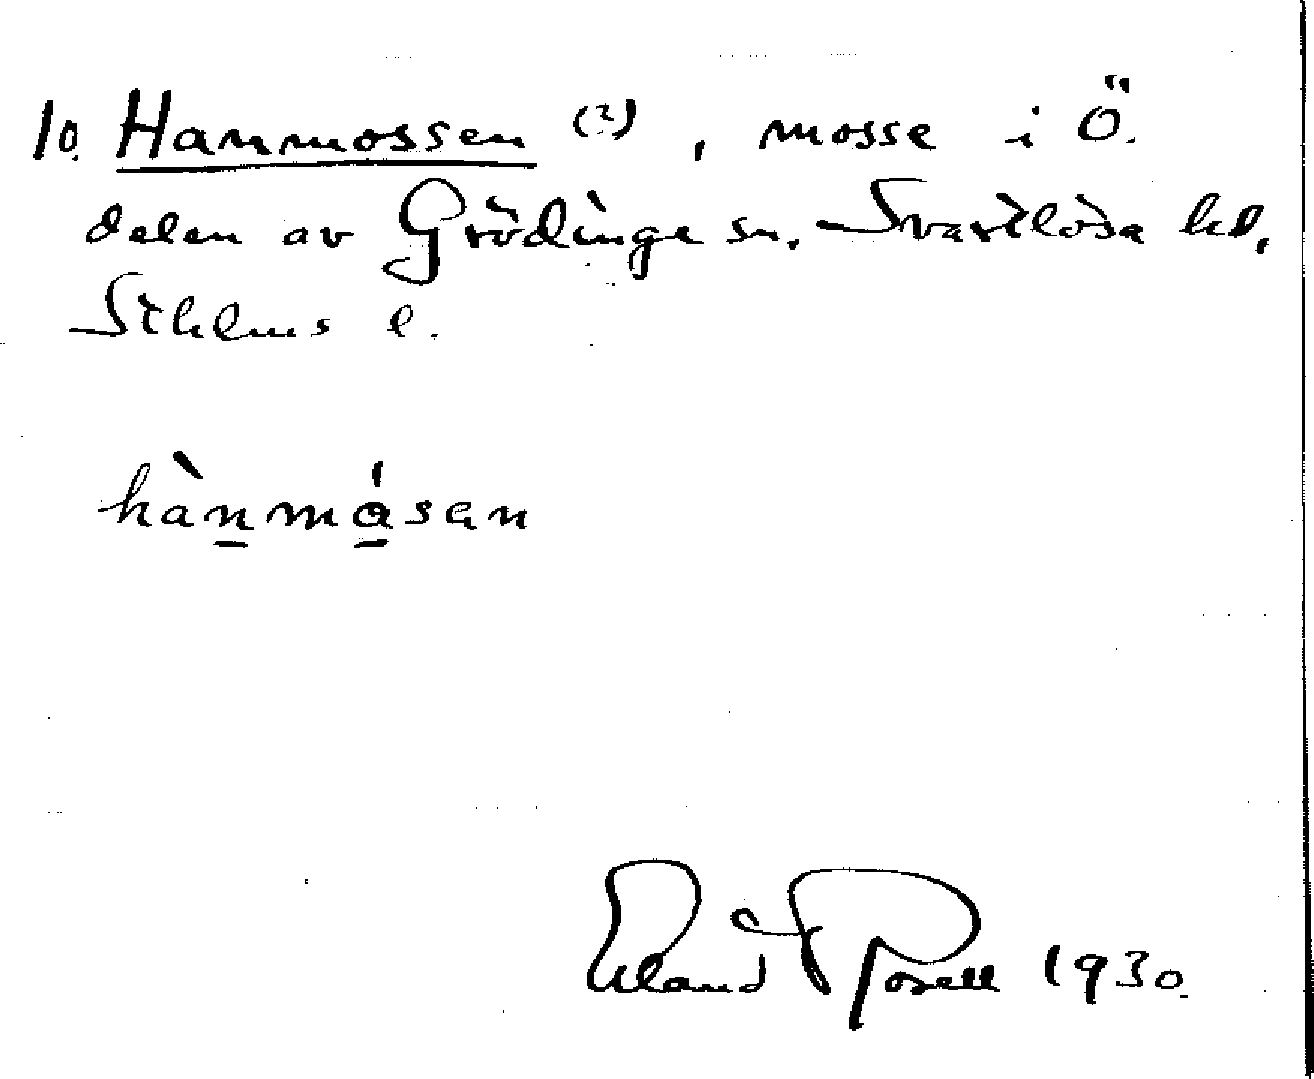 10. Hanmossen (?), mosse i Ö.
delen av Grödinge sn. Svartlösa hd,
Sthlms l.
hànmásan
Erland Rosell 1930.